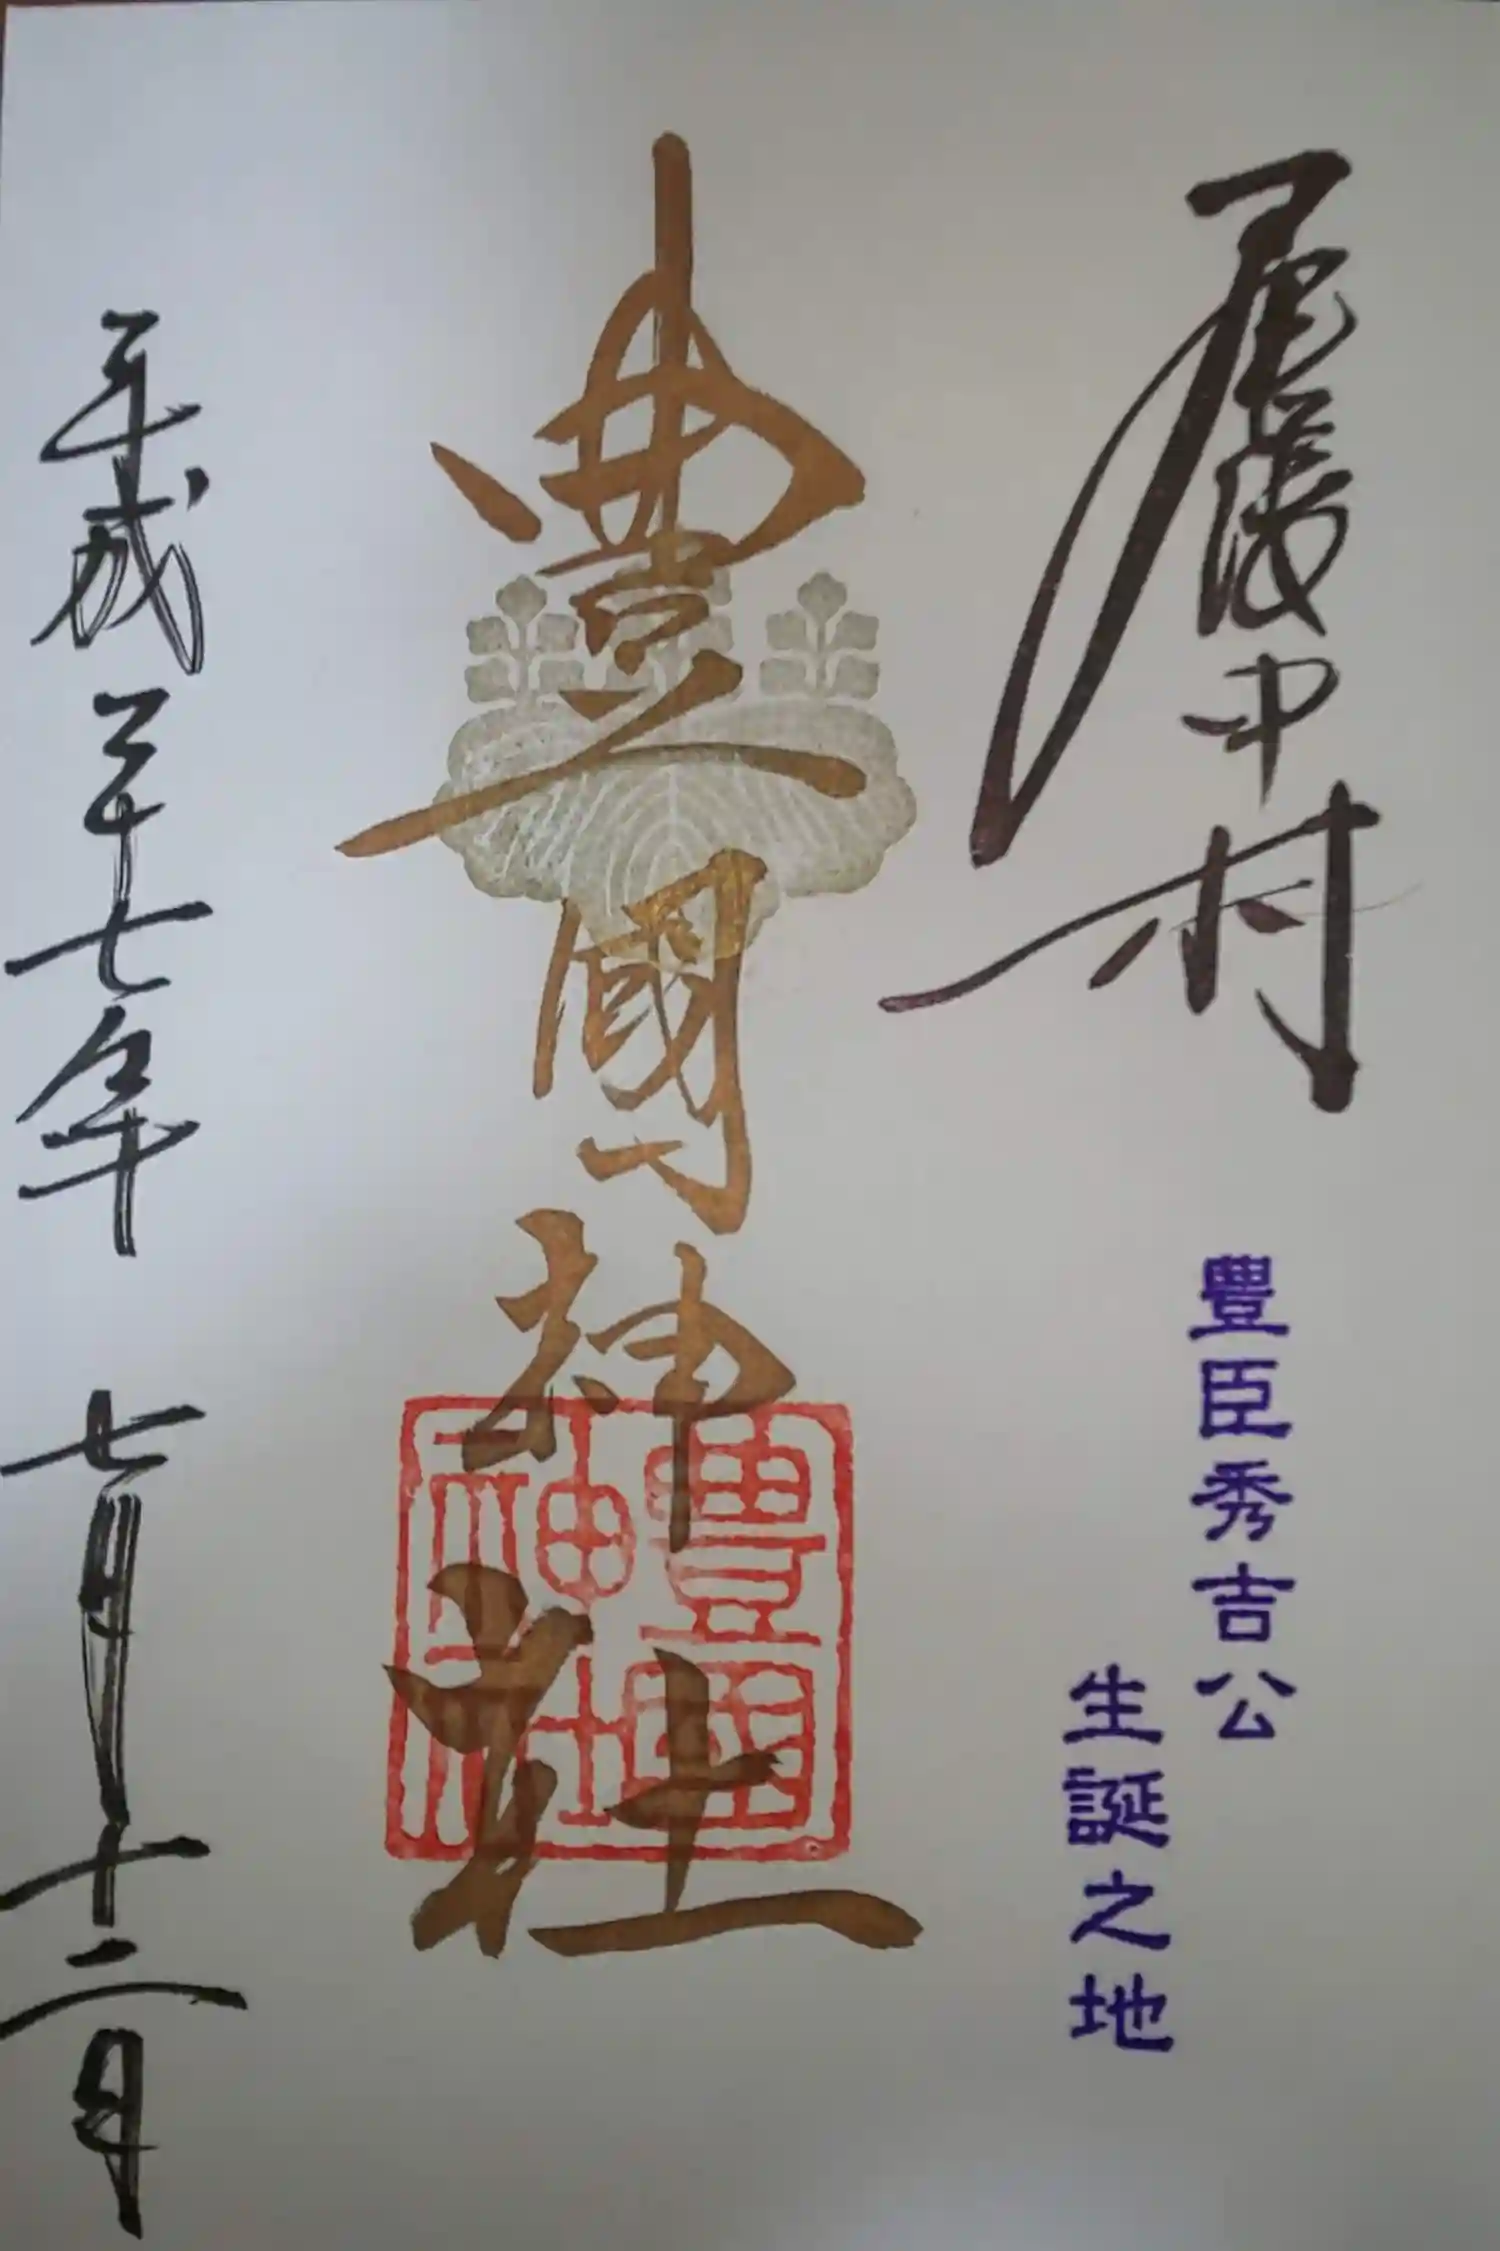 尾張中村
豊臣秀吉公
生誕之地
豊國神社
豊國
神社
平成二十七年 七月十二日